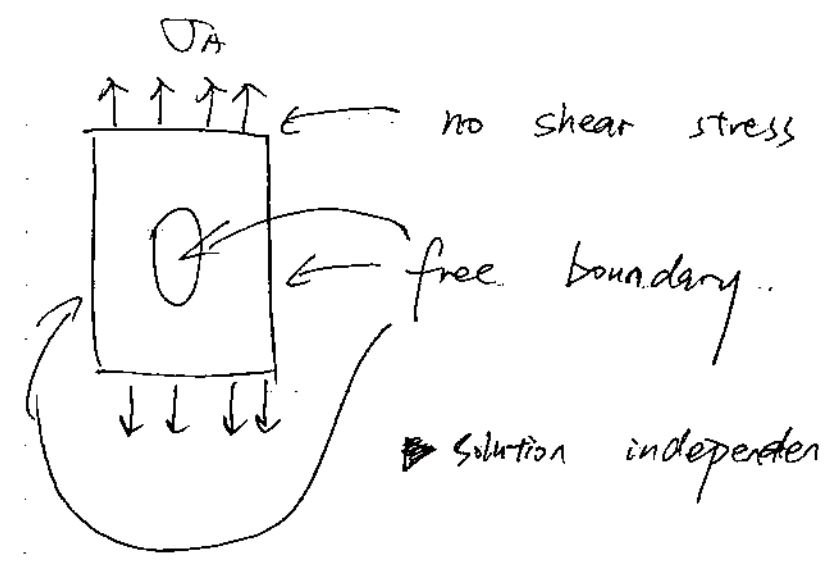 σA
no shear stress
free boundary.
solution independen